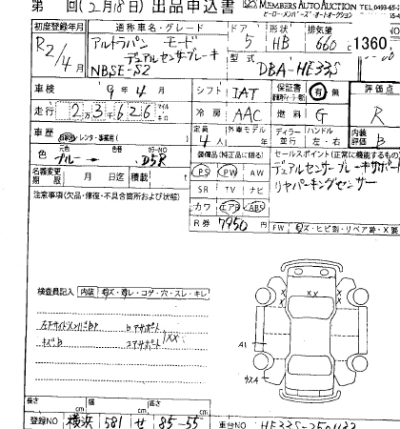 第 回(2月18日) 出品申込書 MEMBERS AUTO AUCTION TEL0493-65-2
ヒーロー・メンバーズ・オートオークション
初度登録年月 通称車名・グレード ドア 形状 排気量
R2/4月 アルトラパン モード 5 HB 660 cc 1360.
デュアルセンサーブレーキ
NBSE-S2 型式 DBA-HE33S
車検 9年4月 シフト IAT 保証書 有・無 評価点
走行 23626 冷房 AAC 燃料 G R
車歴 レンタ・事業用( ) 定員 4人 外車モデル ディーラー 並行 ハンドル 左・右 内装評価 B
色 元色 ブルー 色替 カラーNO D5R 装備品(純正品に限る) セールスポイント(正常に機能するもの)
デュアルセンサーブレーキサポート
リヤパーキングセンサー
名義変更期限 月 日迄 積載 t PS PW AW
SR TV ナビ
注意事項(欠品・修復・不具合箇所および状態) カワ エアB ABS
R券 7950 円 FW キズ・ヒビ割・リペア跡・X要
検査員記入 内装 キズ・汚レ・コゲ・穴・スレ・キレ
XX
A1
長さ cm 幅 cm 高さ cm
登録NO 横浜 581 せ 85-55 車台NO